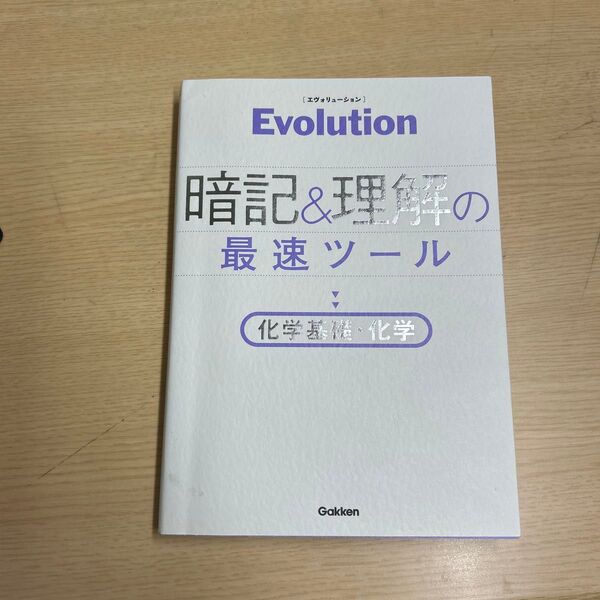 [エヴォリューション]
Evolution
暗記&理解の
最速ツール
化学基礎・化学
Gakken